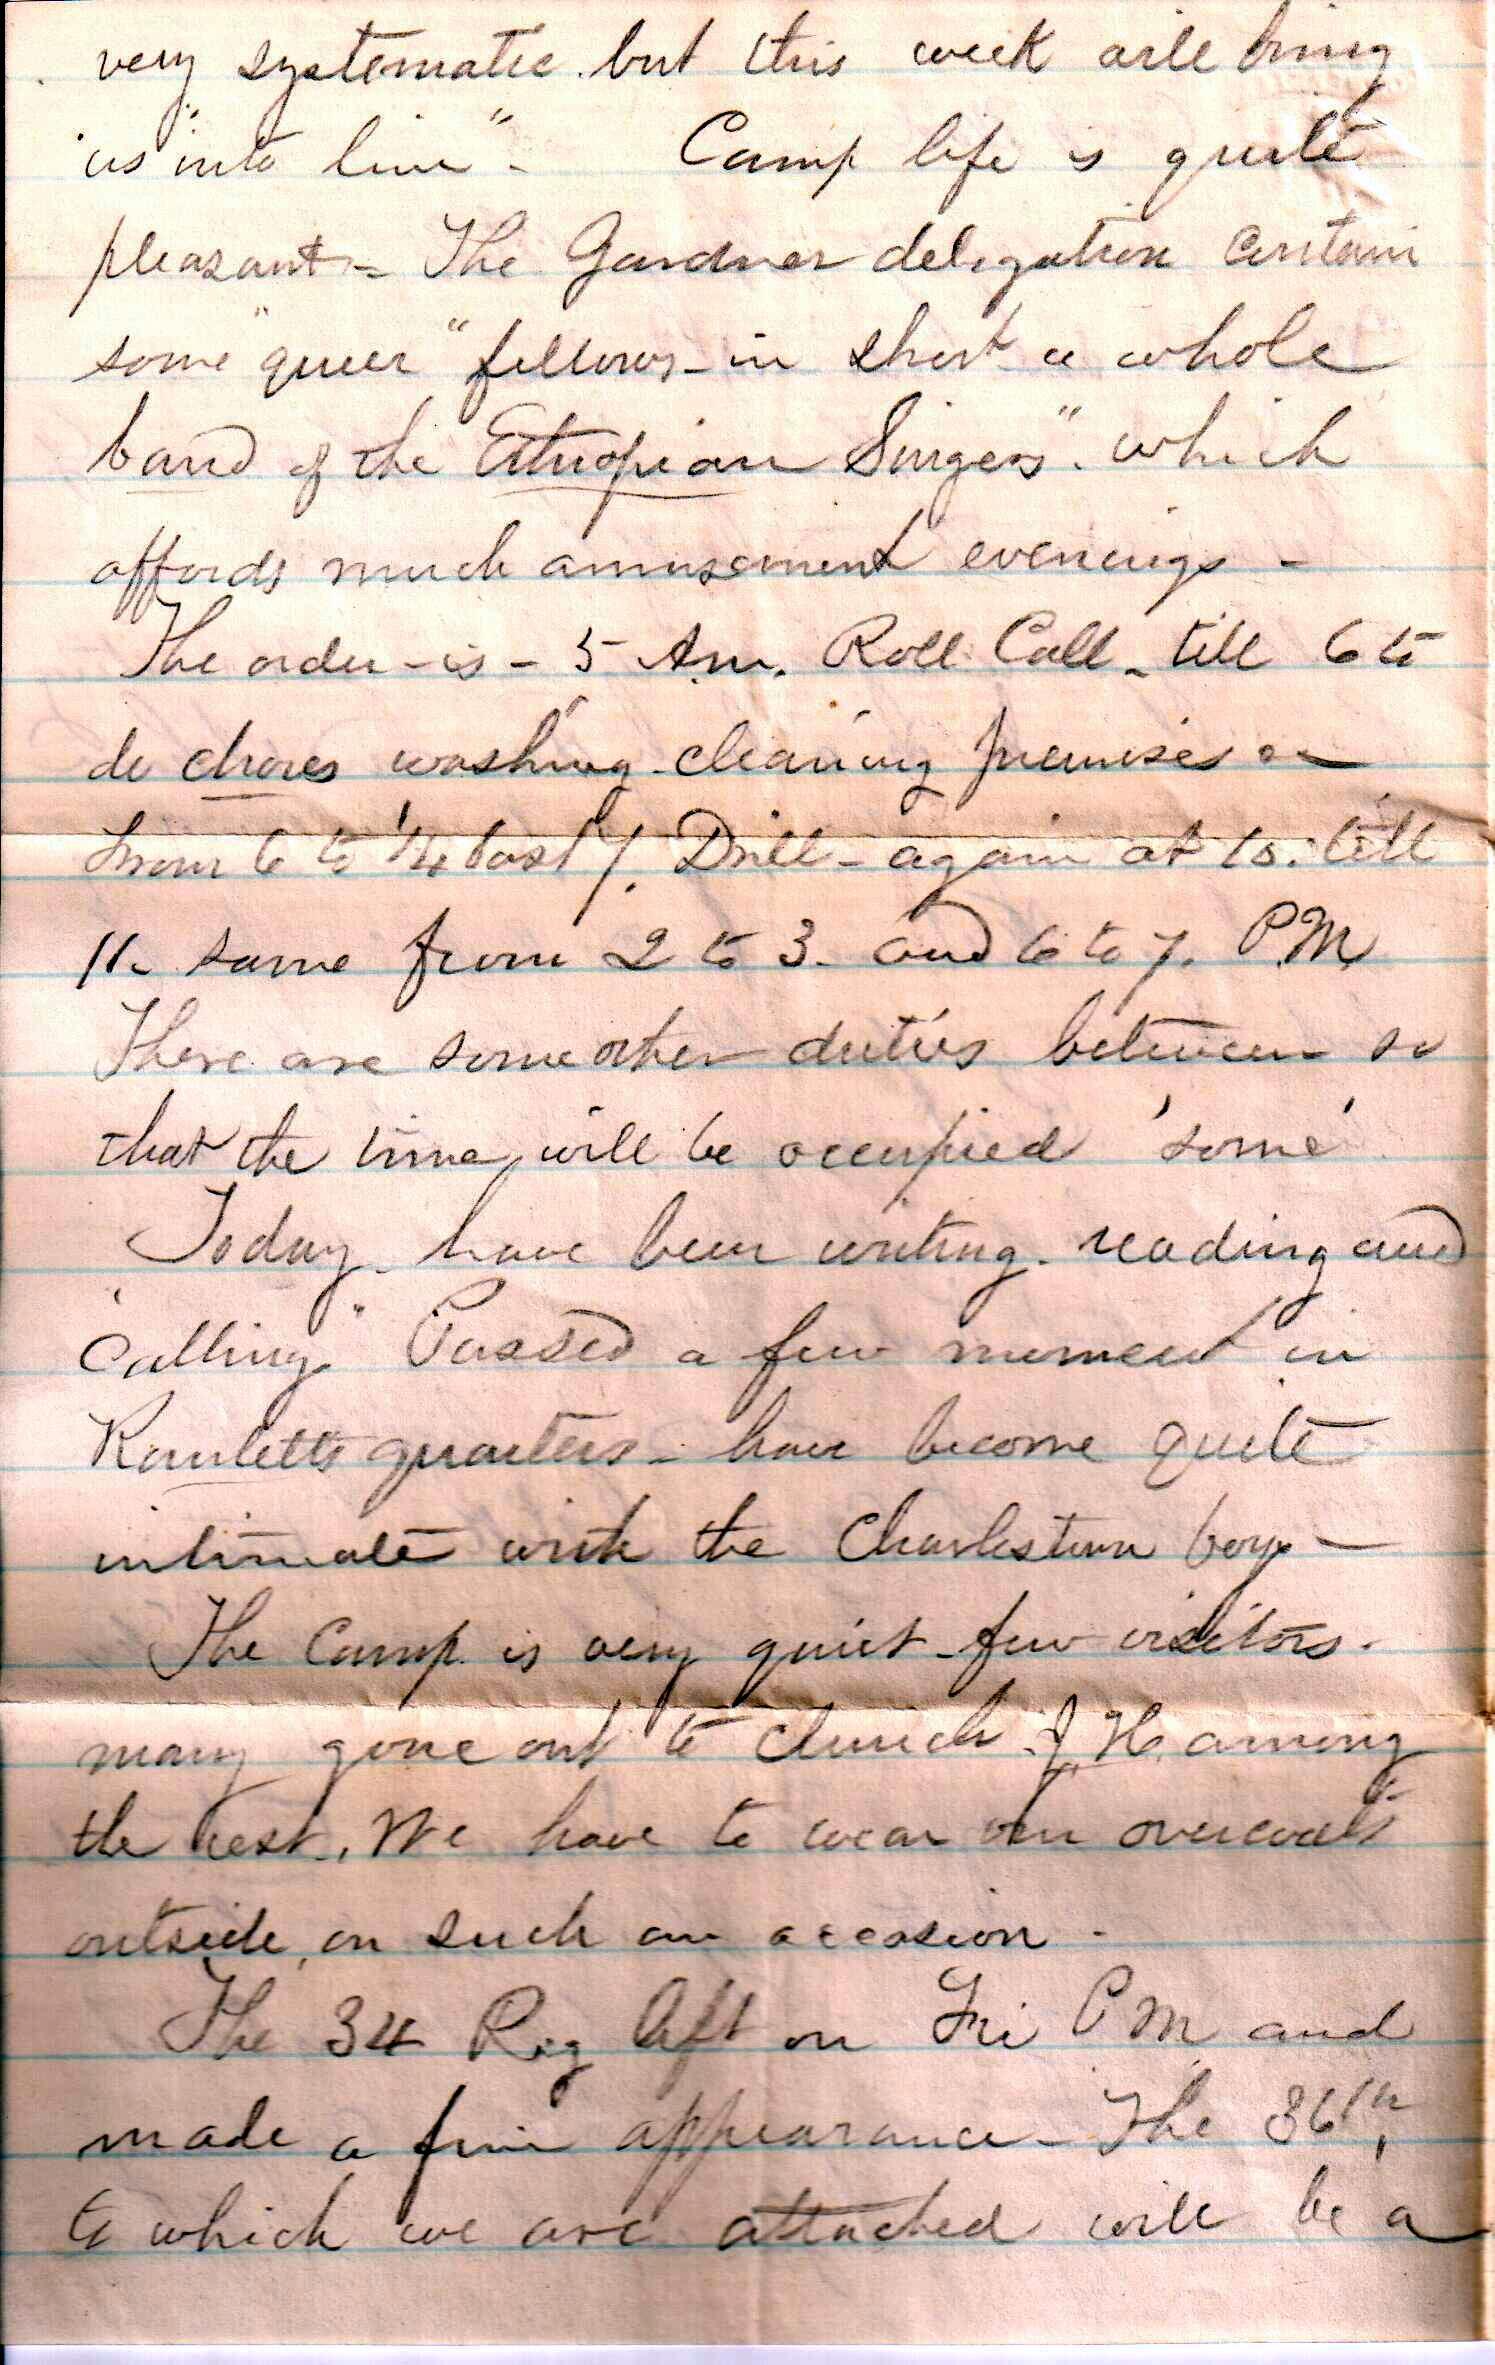 very systematic but this week will bring
us "into line" - Camp life is quite
pleasant - The Gardner delegation contain
some "queer" fellows - in short a whole
band of the Ethiopian Singers". which
affords much amusement evenings -
The order - is - 5 A.m. Roll Call - till 6 to
do chores washing - cleaning premises
from 6 to 1/4 past 7. Drill - again at 10. till
11 - same from 2 to 3 - and 6 to 7. P.M.
There are some other duties between so
that the time, will be occupied 'some'
Today - have been writing - reading and
"calling." Passed a few moment in
Rowletts quarters - have become quite
intimate with the Charlestown boys -
The Camp is very quiet - few visitors -
many gone out to Church - J. H. among
the rest. We have to wear our overcoats
outside, on such an occasion -
The 34 Reg left on Fri P M and
made a fine appearance - The 36th,
to which we are attached will be a